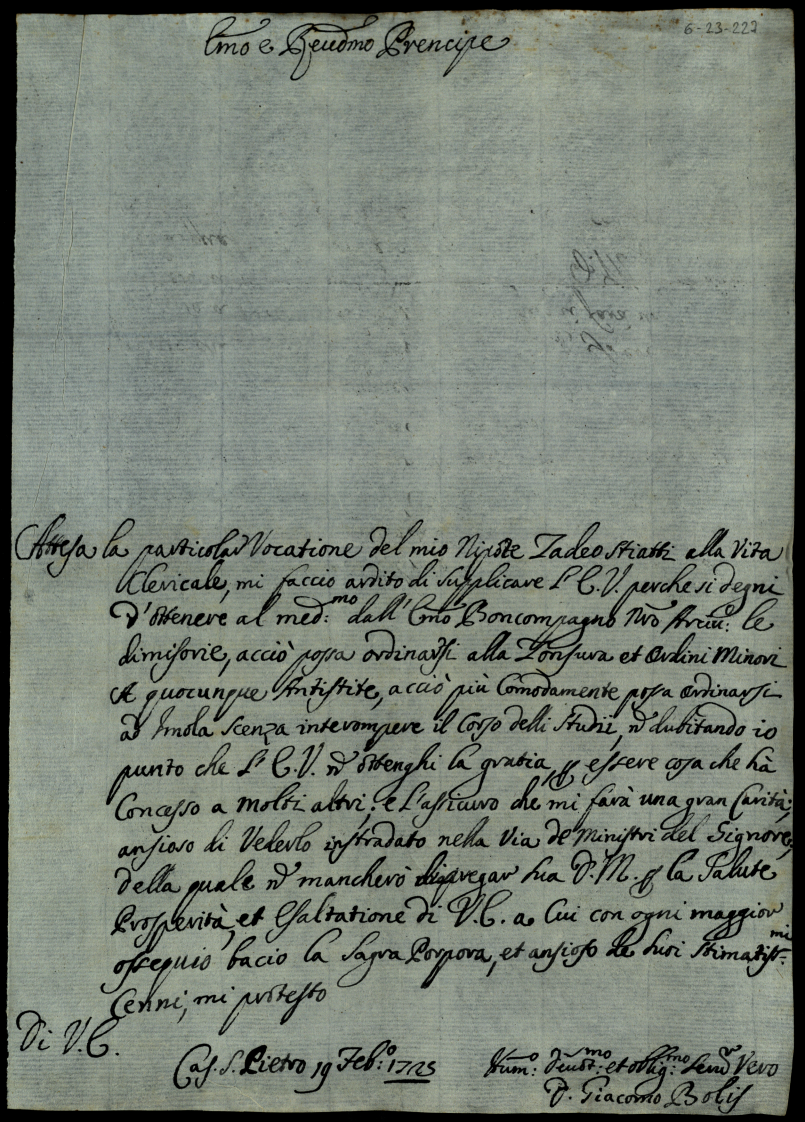 6-23-227
Emo e Reudmo Prencipe
Attesa la particolar Vocatione del mio Nipote Tadeo Stiatti alla Vita
Clericale, mi faccio ardito di supplicare L'E.V. perche si degni
d'ottenere al med:mo dall'Emo Boncompagno Nro Arciu: le
dimisorie, acciò possa ordinarsi alla Tonsura et Ordini Minori
A quocunque Antistite, acciò più Comodamente possa ordinarsi
ad Imola scenza interompere il Corso delli Studii, ñ dubitando io
punto che L'E.V. ñ ottenghi la gratia, p essere cosa che hà
Concesso a molti altri; e L'assicuro che mi farà una gran Carità,
ansioso di Vederlo instradato nella Via de Ministri del Signore,
della quale ñ mancherò di pregar Sua D.M. p la Salute
Prosperità, et Esaltatione di V.E. a Cui con ogni maggior
ossequio bacio la Sagra Porpora, et ansioso de suoi stimatiss:mi
Cenni, mi protesto
Di V.E.
Cas. S. Pietro 19 Feb:o 1725
Hum:o deuot:mo et oblig:mo Seru:r Vero
D. Giacomo Bolis